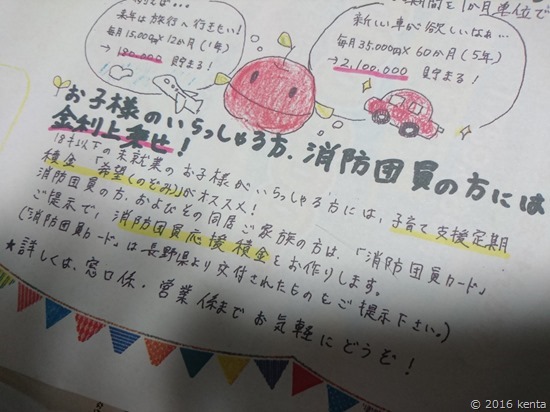 期間を1か月単位で
来年は旅行へ行きたい!
毎月15,000円×12か月(1年)
→180,000 貯まる!
新しい車が欲しいなぁ…
毎月35,000円×60か月(5年)
→2,100,000 貯まる!
お子様のいらっしゃる方、消防団員の方には
金利上乗せ!
18才以下の未就業のお子様がいらっしゃる方には、子育て支援定期
積金「希望(のぞみ)」がオススメ!
消防団員の方、およびその同居ご家族の方は、「消防団員カード」
ご提示で、消防団員応援積金をお作りします。
(「消防団員カード」は長野県より交付されたものをご提示下さい。)
★詳しくは、窓口係・営業係までお気軽にどうぞ!
© 2016 kenta